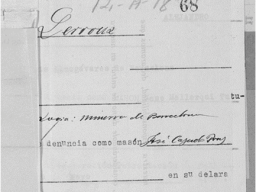 68
Lerroux
tu-
Logia: Minerva de Barcelona
denuncia como masón José
en su delara